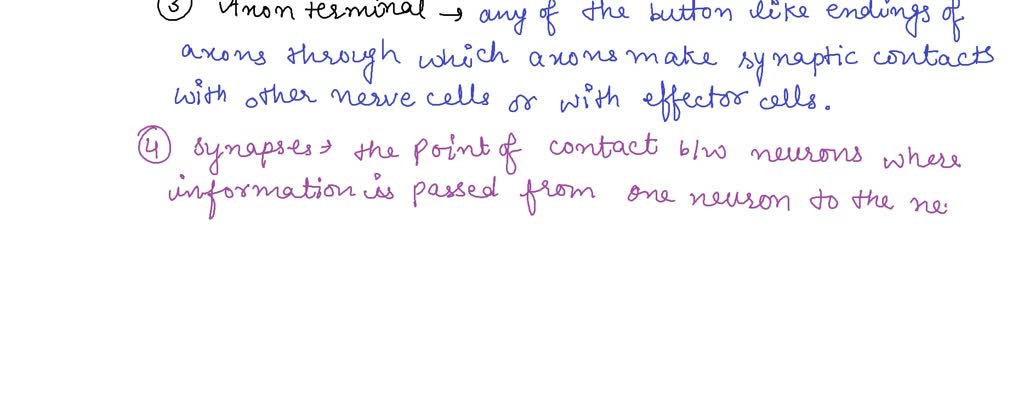 ③ Axon terminal → any of the button like endings of
axons through which axons make synaptic contacts
with other nerve cells or with effector cells.
④ synapses → the point of contact b/w neurons where
information is passed from one neuron to the ne